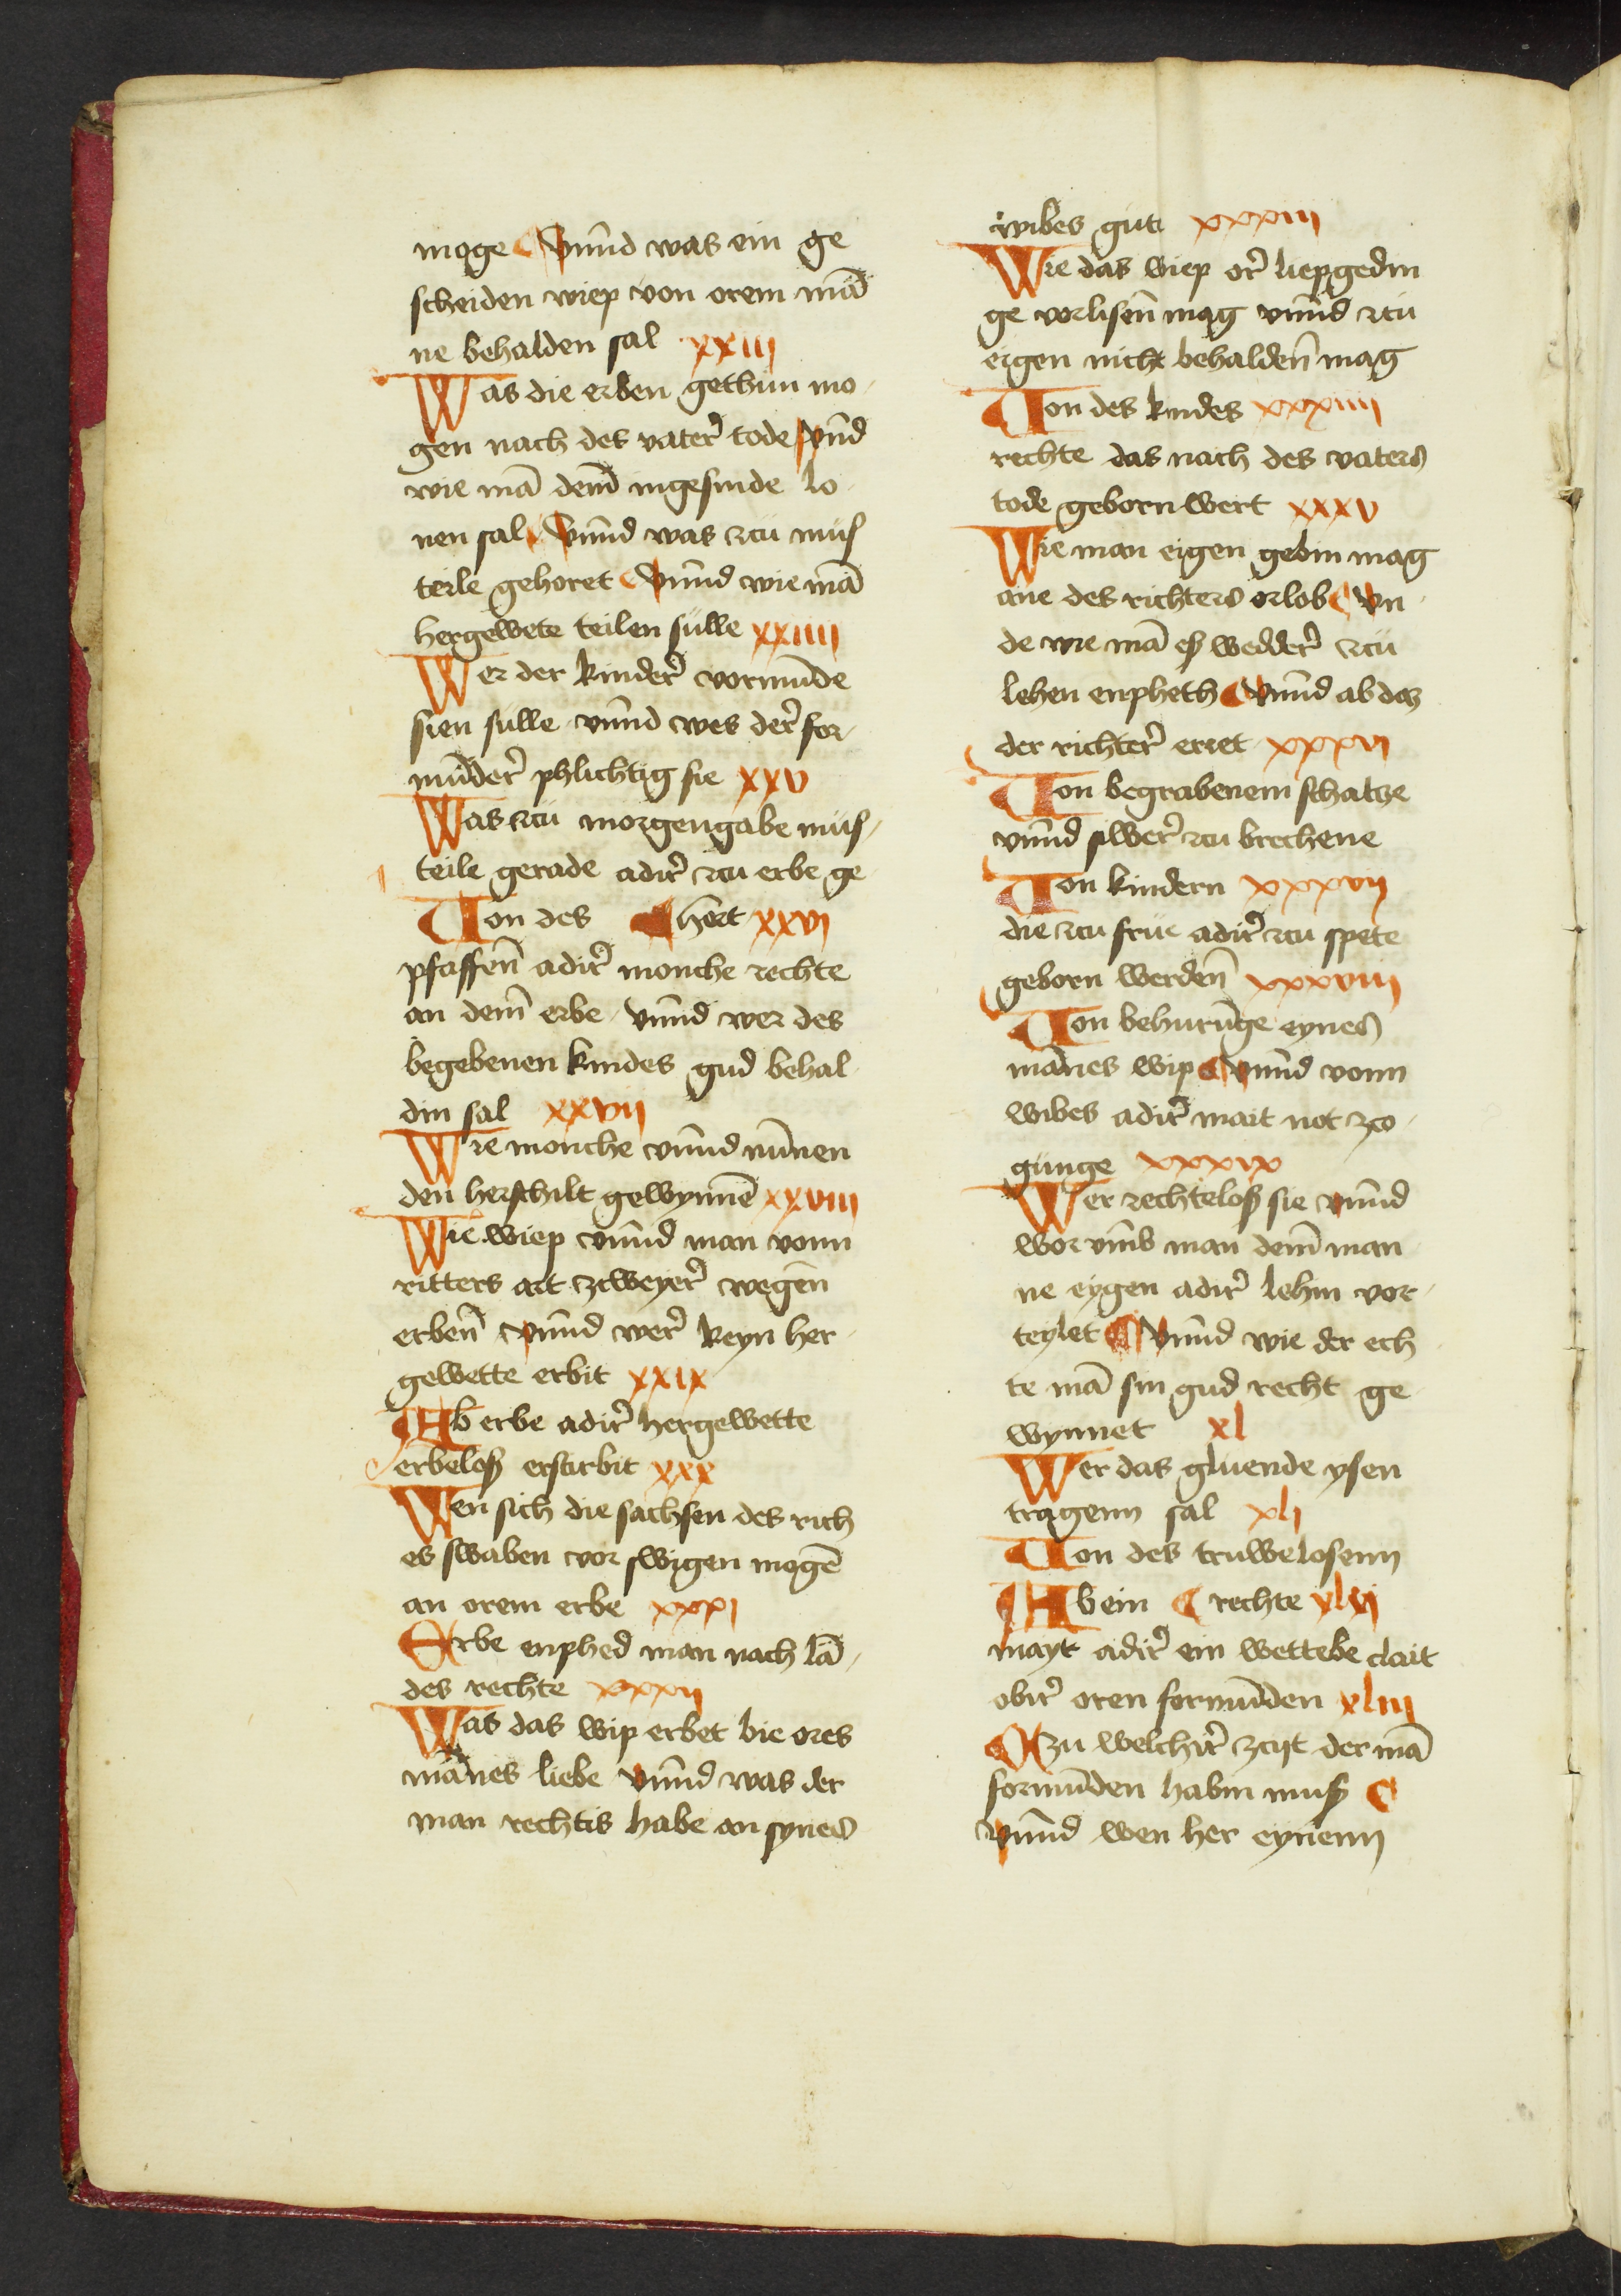 moge ¶ vnnd was ein ge
scheiden wiep von orem mā
ne behalden sal xxiii
Was die erben gethun mo
gen nach des vater̄ tode vnd
wie mā dem̄ ingesinde lo
nen sal ¶ vnnd was zcu mus
teile gehoret ¶ vnnd wie mā
hergewete teilen sulle xxiiii
Wer der kinder̄ vormūde
sien sulle vnnd wes der̄ for
mūder̄ phlichtig sie xxv
Was zcu morgengabe mus
teile gerade adir̄ zcu erbe ge
Von des ¶ hort xxvi
pfaffen̄ adir̄ monche rechte
an dem̄ erbe vnnd wer des
begebenen kindes gud behal
din sal xxvii
Wie monche vnnd nūnen
den herschilt gewynnē xxviii
Wie wiep vnnd man vonn
ritters art zcweyer̄ wegen̄
erben̄ vnnd wer̄ keyn her
gewette erbit xxix
Ab erbe adir̄ hergewette
erbeloß erstirbit xxx
Wen sich die sachsen des rich
es swaben vor swigen mogē
an orem erbe xxxi
Erbe enphed man nach lā
des rechte xxxii
Was das wip erbet bie ores
mānes liebe vnnd was der
man rechtis habe an synes
wibes gut xxxiii
Wie das wiep or̄ liepgedin
ge vorlisen̄ mag vnnd zcu
eigen nicht behalden̄ mag
Von des kindes xxxiiii
rechte das nach des vaters
tode geborn wert xxxv
Wie man eigen gebin mag
ane des richters orlob ¶ vn
de wie mā eß wedder̄ zcu
lehen enpheth ¶ vnnd ab daz
der richter̄ erret xxxvi
Von begrabenem schatze
vnnd silber̄ zcu brechene
Von kindern xxxvii
die zcu frue adir̄ zcu spete
geborn werden̄ xxxviii
Von behurūge eynes
mānes wip ¶ vnnd vonn
wibes adir̄ mait not zco
gunge xxxix
Wer rechteloß sie vnnd
wor vmb man dem̄ man
ne eygen adir̄ lehin vor
teylet ¶ vnnd wie der ech
te mā sin gud recht ge
wynnet xl
Wer das gluende ysen
tragenn sal xli
Von des truwelosenn
Ab ein ¶ rechte xlvi
mayt adir̄ ein wettebe clait
obir̄ oren formūden xliii
Czu welchir̄ zcijt der mā
formūden habin muß ¶
vnnd wen her eynenn